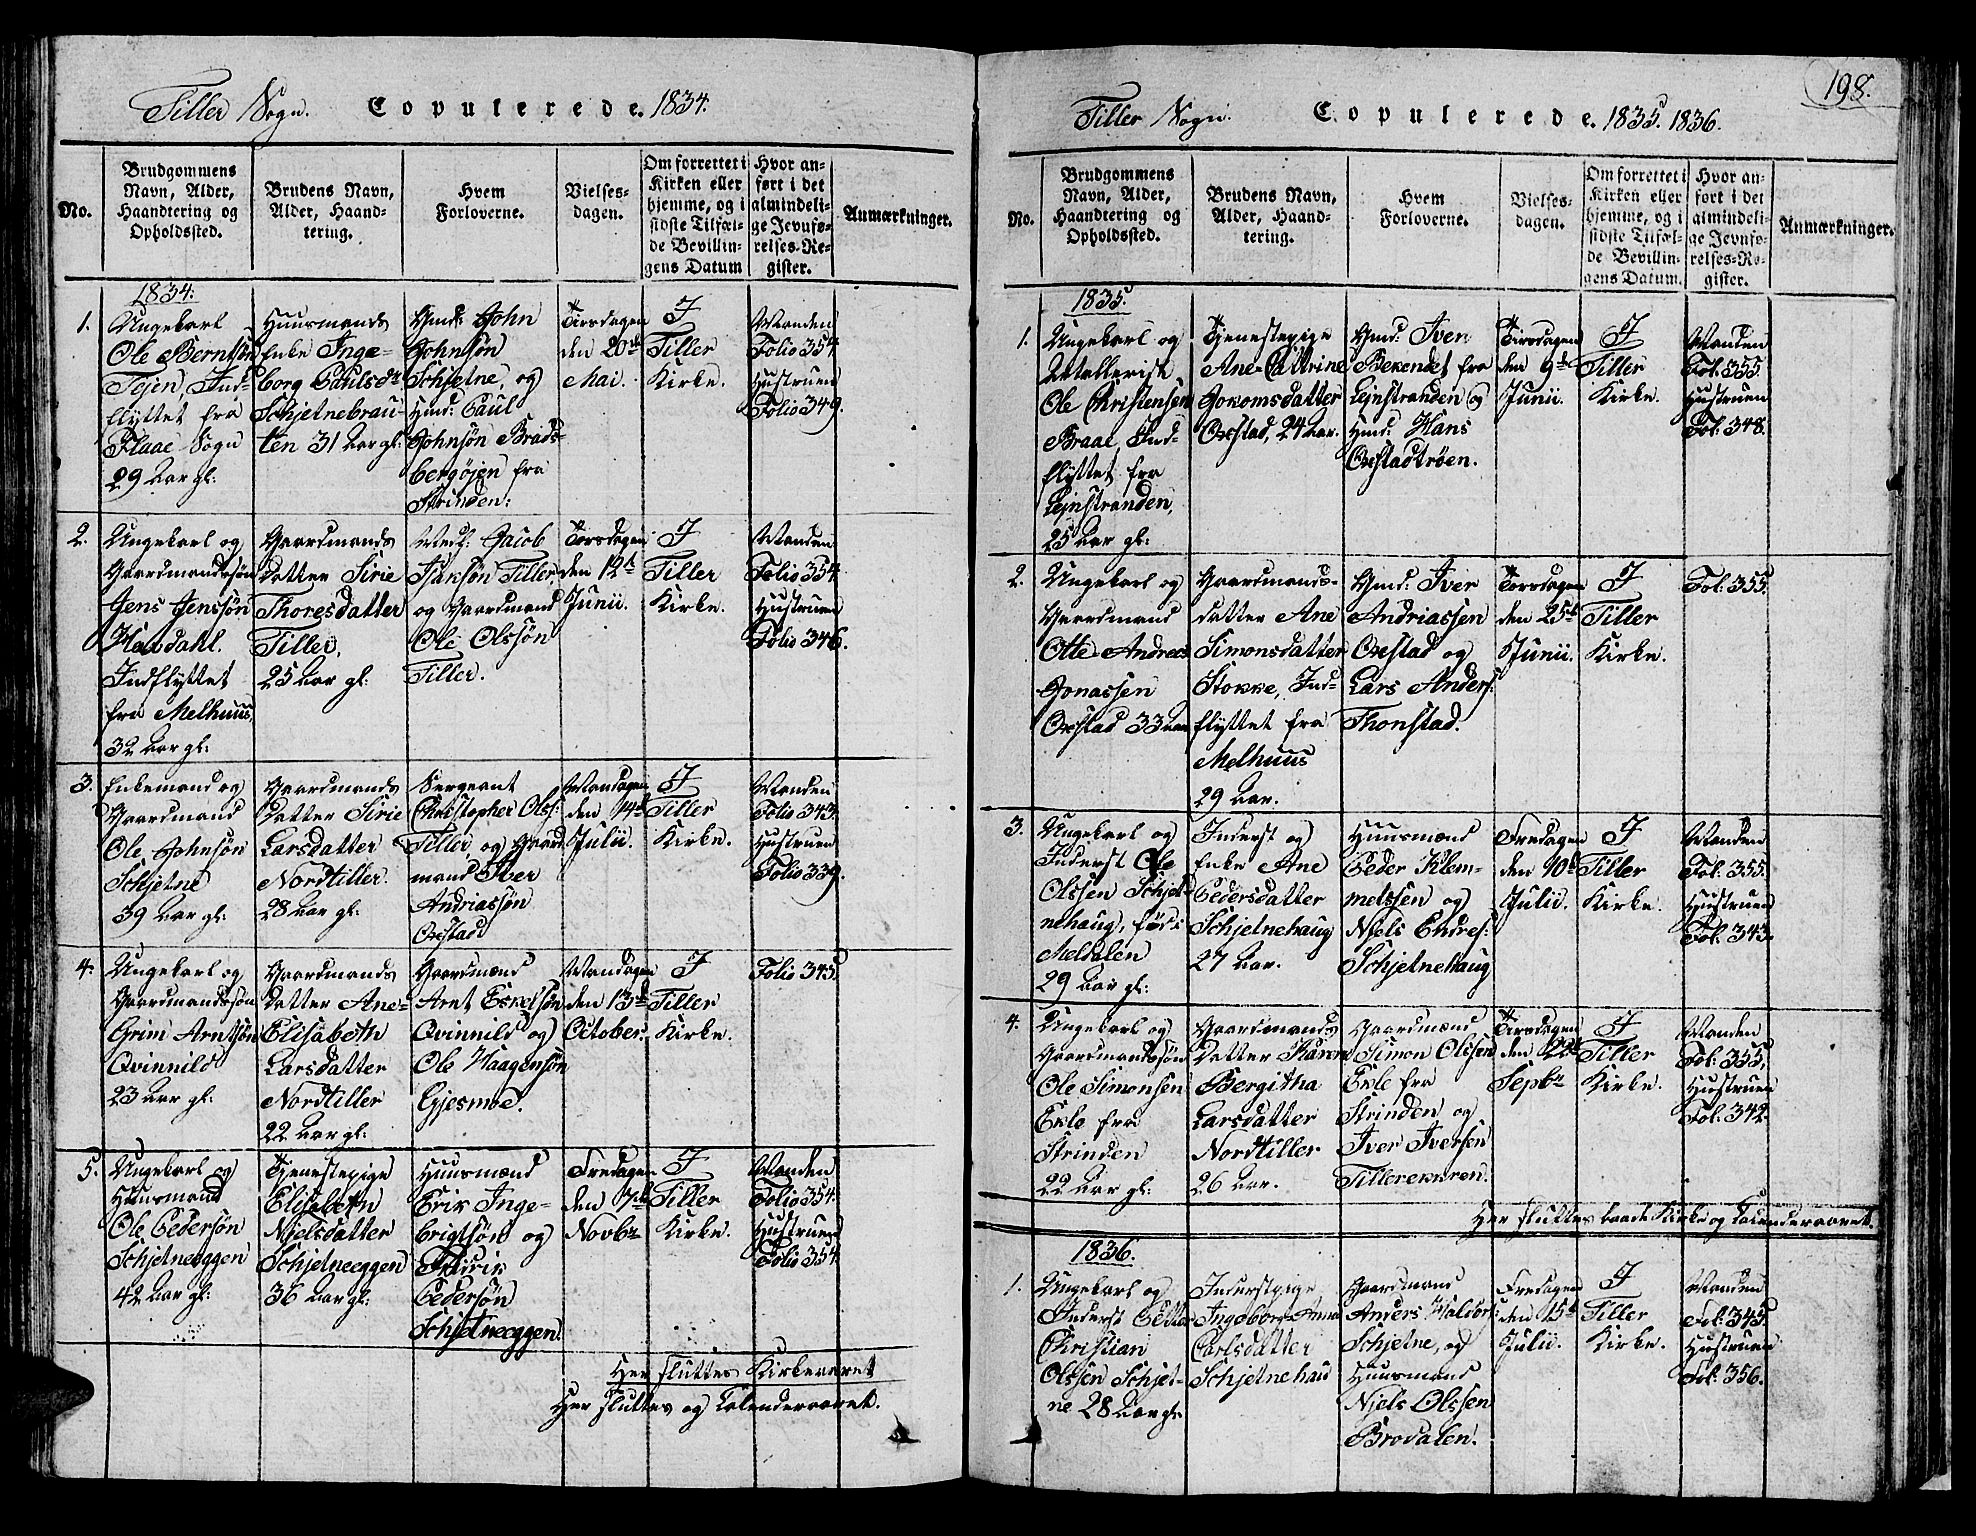 Tiller Sogn. Copulerede. 1834.
No.
Brudgommens
Navn, Alder,
Haandtering og
Opholdssted.
Brudens Navn,
Alder, Haand-
tering.
Hvem
Forloverne.
Vielses-
dagen.
Om forrettet i
Kirken eller
hjemme, og i
sidste Tilfæl-
de Bevillin-
gens Datum
Hvor an-
ført i det
almindeli-
ge Jevnfø-
relses-Re-
gister.
Anmærkninger.
1834.
1.
Ungekarl
Ole Berntsøn
Tejen, Ind-
flyttet fra
Flaae Sogn
29 Aar gl:
Huusmands
Enke Inge-
borg Paulsdr
Schjetnebrau-
ten 31 Aar gl:
Gmd: John
Johnsøn
Schjetne, og
Hmd: Paul
Johnsøn Brads-
bergøjen fra
Strinden:
Tirsdagen
den 20de
Mai.
I
Tiller
Kirke.
Manden
Folio 354.
Hustruen
Folio 349.
2.
Ungekarl og
Gaardmandssøn
Jens Jenssøn
Hasdahl.
Indflyttet
fra Melhuus,
32 Aar gl:
Gaardmands
Datter Sirie
Thoresdatter
Tiller,
25 Aar gl:
Jacob
Isaksøn Tiller,
og Gaardmand
Ole Olssøn
Tiller.
Torsdagen
den 12te
Junii.
I
Tiller
Kirke.
Manden
Folio 354.
Hustruen
Folio 346.
3.
Enkemand og
Gaardmand
Ole Johnsøn
Schjetne
39 Aar gl:
Gaardmands
Datter Sirie
Larsdatter
Nordtiller.
28 Aar gl:
Sergeant
Christopher Ols:
Tiller og Gaard
mand Iver
Andriassøn
Oxstad
Mandagen
den 14de
Julii.
I
Tiller
Kirke.
Manden
Folio 343.
Hustruen
Folio 339.
4.
Ungekarl og
Gaardmandssøn
Grim Arntsøn
Qvinnild
23 Aar gl:
Gaardmands
Datter Ane-
Elisabeth
Larsdatter
Nordtiller
22 Aar gl:
Gaardmænd
Arnt Eskelsøn
Qvinnild og
Ole Haagensøn
Gjesmoe.
Mandagen
den 13de
October.
I
Tiller
Kirke.
Folio 345.
5.
Ungekarl og
Huusmand
Ole Pedersøn
Schjetneeggen
42 Aar gl:
Tjenestepige
Elisabeth
Njelsdatter
Schjetneeggen
36 Aar gl:
Huusmænd
Erik Inge-
brigtsøn og
Pedersøn
Schjetneeggen.
Fredagen
den 7de
Novbr
I
Tiller
Kirke.
Manden
Folio 354.
Hustruen
Folio 354.
Her sluttes Kirkeaaret
Her sluttes og Calenderaaret.
198.
Tiller Sogn. Copulerede. 1835. 1836.
No.
Brudgommens
Navn, Alder,
Haandtering og
Opholdssted.
Brudens Navn,
Alder, Haand-
tering.
Hvem
Forloverne.
Vielses-
dagen.
Om forrettet i
Kirken eller
hjemme, og i
sidste Tilfæl-
de Bevillin-
gens Datum.
Hvor an-
ført i det
almindeli-
ge Jevnfø-
relses-Re-
gister.
Anmærkninger.
1835.
1.
Ungekarl og
Artellerist
Ole Christensen
Braae, Ind-
flyttet fra
Lejnstranden,
25 Aar gl:
Tjenestepige
Ane-Cathrine
Gokomsdatter
Oxstad, 24 Aar.
Gmd: Iver
Bekendet fra
Lejnstranden og
Hmd: Hans
Oxstadtrøen.
Tirsdagen
den 9de
Junii.
I
Tiller
Kirke.
Manden
Fol: 355.
Hustruen
Fol: 348.
2.
Ungekarl og
Gaardmand
Otte Andreas
Jonassen
Oxstad 33 Aar
Gaardmands-
datter Ane
Simonsdatter
Stokke, Ind-
flyttet fra
Melhuus
29 Aar.
Gmd: Iver
Andriassen
Oxstad og
Lars Anders:
Thonstad.
Torsdagen
den 25de
Junii.
I
Tiller
Kirke.
Fol: 355.
3.
Ungekarl og
Inderst Ole
Olssen Schjet-
nehaug, fød:
Meldalen
29 Aar gl:
Inderst og
Enke Ane
Pedersdatter
Schjetnehaug
27 Aar.
Huusmænd
Peder Klem-
metssen og
Njels Endres:
Schjetnehaug
Fredagen
den 10de
Julii.
I
Tiller
Kirke.
Manden
Fol: 355.
Hustruen
Fol: 343.
4.
Ungekarl og
Gaardmandssøn
Ole Simonsen
Exle fra
Strinden
22 Aar gl:
Gaardmands
Datter Karen
Bergitha
Larsdatter
Nordtiller
26 Aar.
Gaardmænd
Simon Olssen
Exle fra
Strinden og
Iver Iversen
Tillerekkren.
Tirsdagen
den 22de
Septbr
I
Tiller
Kirke.
Manden
Fol: 355,
Hustruen
Fol: 342.
Her sluttes baade Kirke og Calenderaaret.
1836.
1.
Ungekarl og
Inderst Petter
Christian
Olssen Schjet-
ne 28 Aar gl.
Inderstpige
Ingeborg-Anna
Carlsdatter
Schjetnehaug
Gaardmand
Anders Haldors:
Schjetne, og
Huusmand
Njels Olssen
Brodalen.
Fredagen
den 15de
Julii.
I
Tiller
Kirke.
Manden
Fol: 345.
Hustruen
Fol: 356.